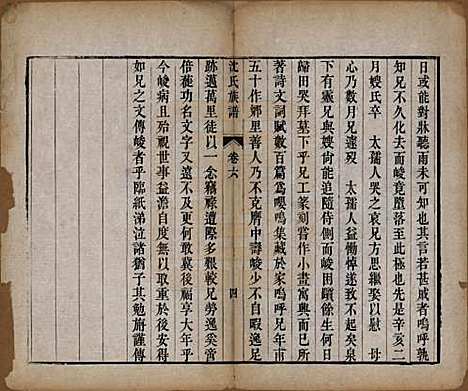 日或能對牀聽雨未可料也而豈知其有甚戚者嗚呼孰
知兄不化去而峻竟墮落至此極也先是辛亥二
月嫂氏卒　太孺人哭之哀兄方思繼娶以慰　母
心乃數月兄遽歿　太孺人益慟悼遂致不起
下有靈兄與嫂尙能追隨侍側而峻回顧餘生何日
歸田哭拜墓下乎兄工篆刻嘗作小畫寓興而已所
著詩文詞賦數百篇爲嚶鳴集藏於家嗚呼兄年垂
五十作鄉里善人乃不克膺中壽峻少不自暇逸足
沈氏族譜
卷六
四
跡邁萬里徒以一念竊祿遭際多艱較兄勞逸奚啻
倍蓰功名文字又遠不及其何敢冀後福享大年乎
今峻病且益深設一旦溘先朝露後世誰復知兄
如兄之文傳峻者乎臨紙涕泣諸猶子其勉旃謹傳